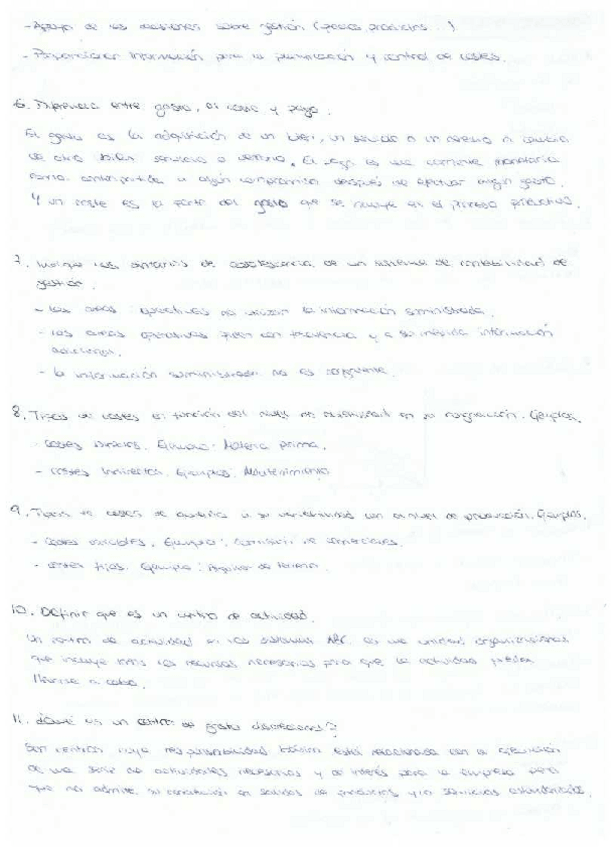 - Apoyo de las decisiones sobre gestión (precios productos...).
- Proporcionar información para la planificación y control de costes.
6. Diferencia entre gasto, el coste y pago.
El gasto es la adquisición de un bien, un servicio o un a cambio
de otro bien, servicio o El pago es una monetaria
como contrapartida a algún compromiso después de efectuar algún gasto.
Y un coste es la parte del gasto que se incluye en el proceso productivo.
7. Indique los síntomas de obsolescencia de un sistema de contabilidad de
gestión.
- Las áreas operativas no utilizan la información suministrada.
- Las áreas operativas piden con frecuencia y a su medida información
adicional.
- La información suministrada no es congruente.
8. Tipos de costes en función del nivel de objetividad en su asignación. Ejemplos.
- Costes directos. Ejemplo: Materia prima.
- Costes indirectos. Ejemplos: Mantenimiento
9. Tipos de costes de acuerdo a su variabilidad con el nivel de producción. Ejemplos.
- Costes variables. Ejemplo: Comisión de comerciales.
- Costes fijos. Ejemplo: Alquiler de
10. Definir que es un centro de actividad.
Un centro de actividad en los sistemas ABC es una unidad organizacional
que incluye todos los recursos necesarios para que la actividad pueda
llevarse a cabo.
11. ¿Qué es un centro de gastos discrecionales?
Son centros cuya responsabilidad básica está relacionada con la ejecución
de una serie de actividades necesarias y de interés para la empresa pero
que no admite su en salidas de productos y/o servicios estandarizados.